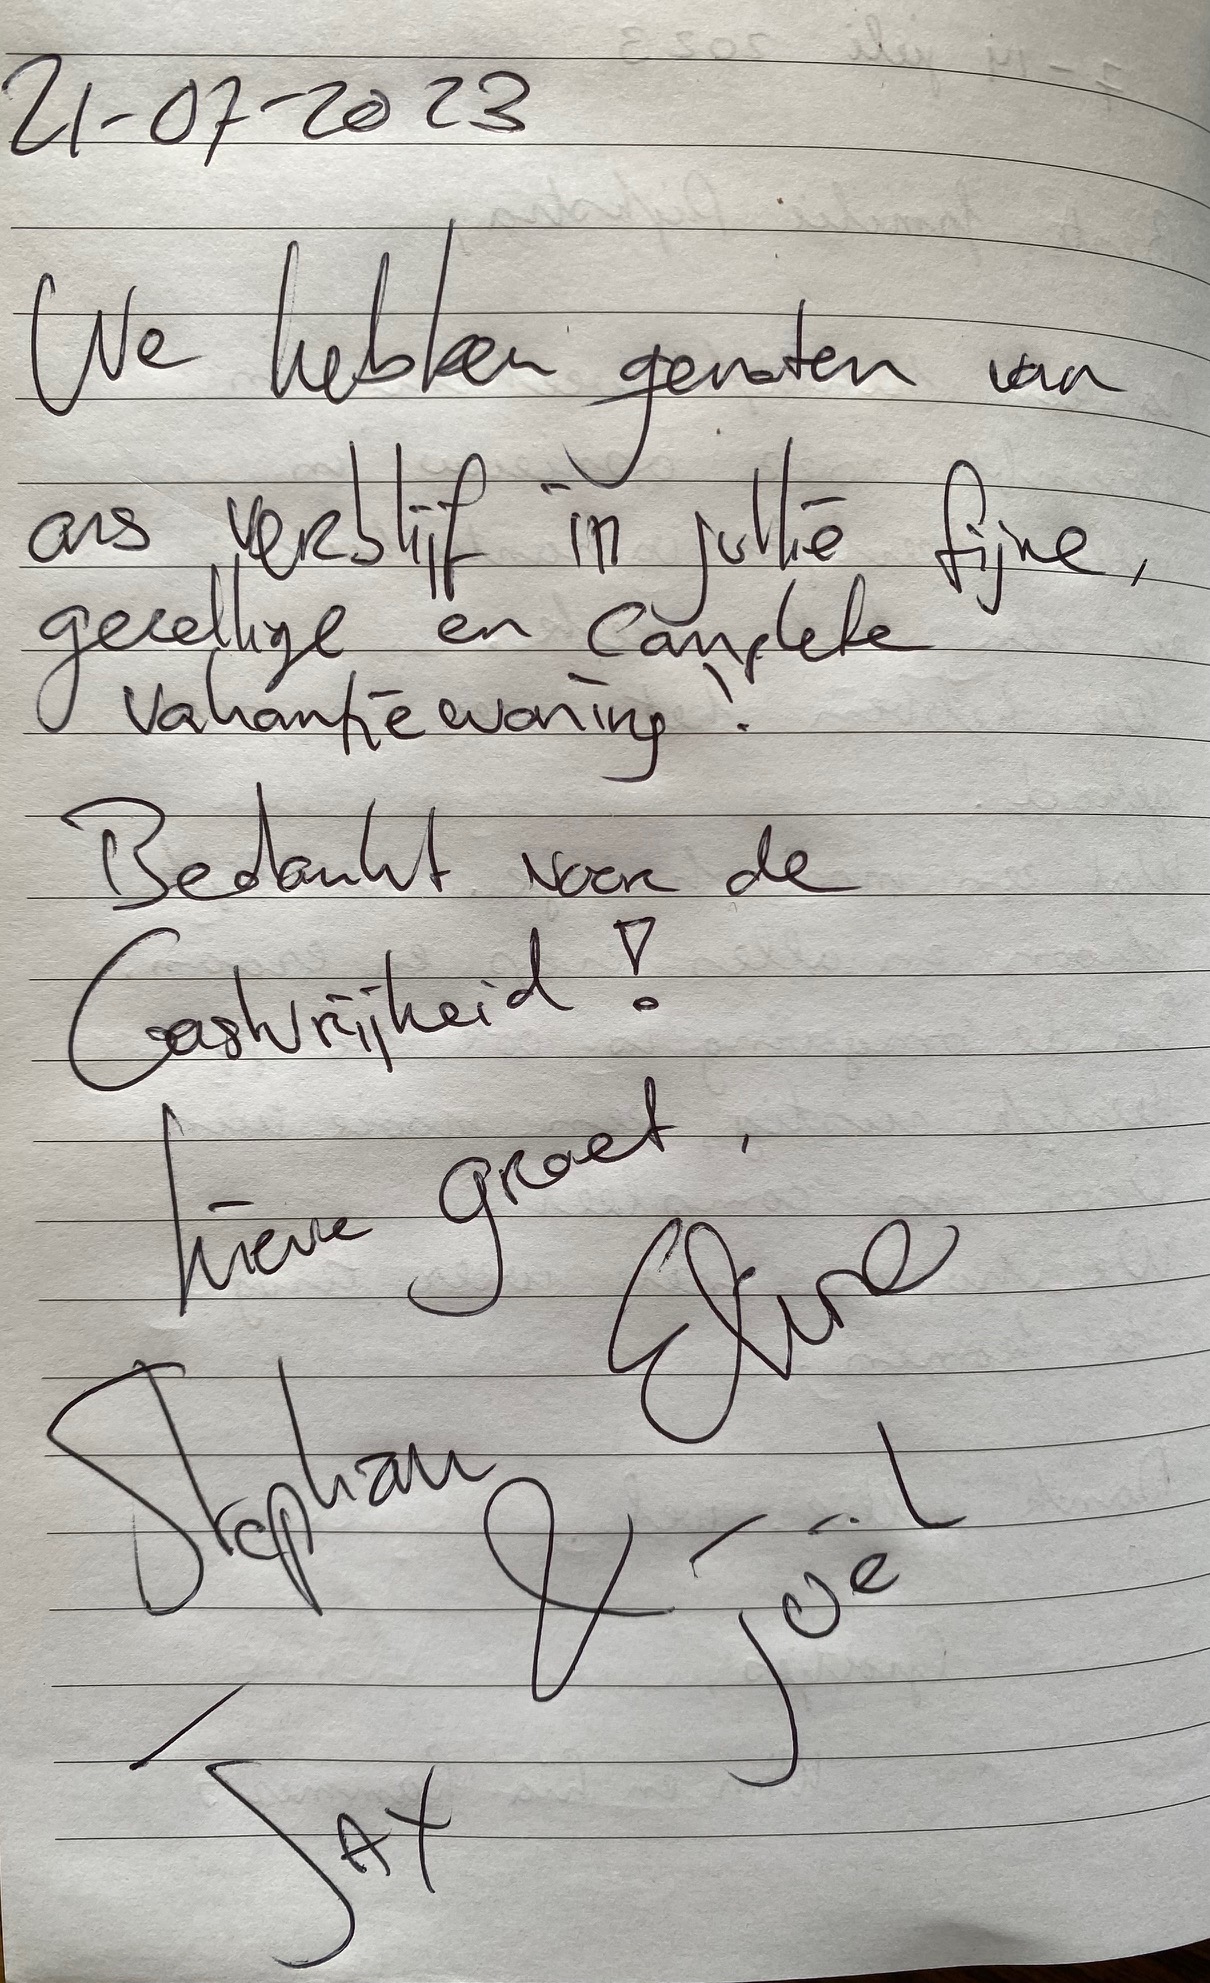 21-07-2023
We hebben genoten van
ons verblijf in jullie fijne,
gezellige en complete
vakantiewoning!
Bedankt voor de
Gastvrijheid!
Lieve groet,
Stephan
& Joël
JAX